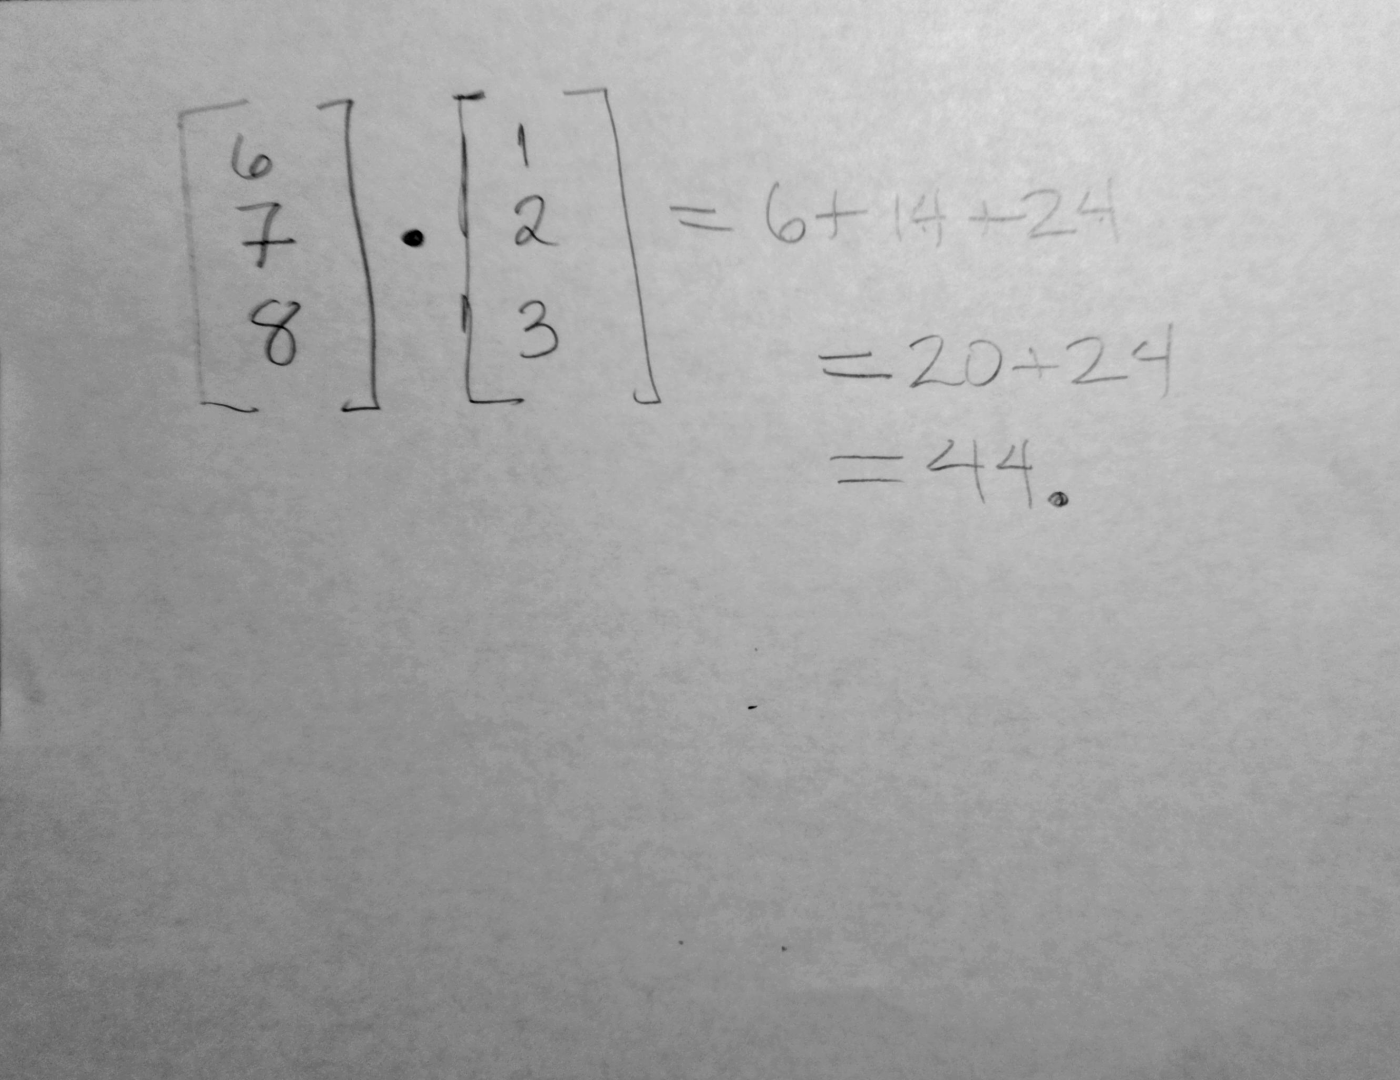 [6 7 8] · [1 2 3] = 6+14+24
= 20+24
= 44.